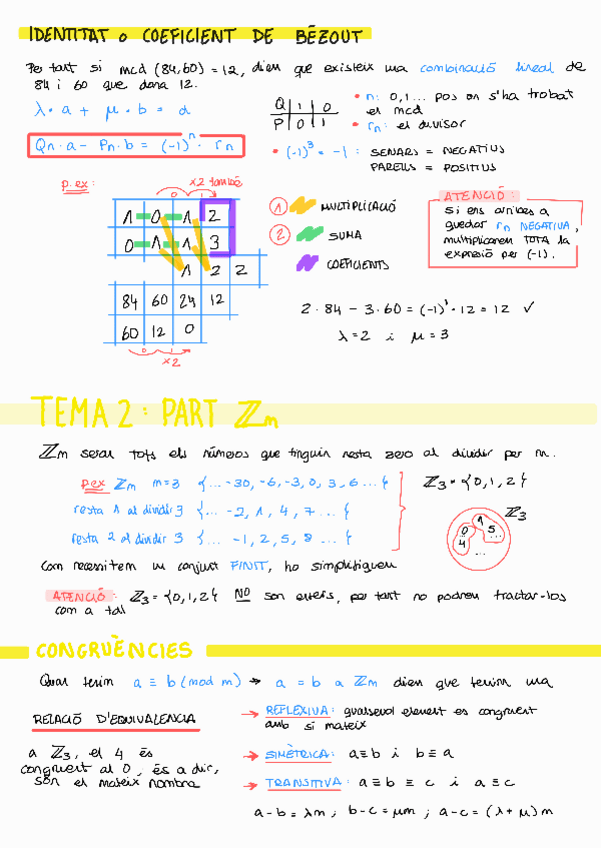 IDENTITAT o COEFICIENT DE BÉZOUT
Per tant si mcd (84,60) = 12, diem que existeix una combinació lineal de
84 i 60 que dona 12.
λ · a + μ · b = d
Qn · a - Pn · b = (-1)^n · rn
Q 1 0
P 0 1
• n: 0,1... pos on s'ha trobat
el mcd
• rn: el divisor
• (-1)³ = -1 : SENARS = NEGATIUS
PARELLS = POSITIUS
p.ex:
0 1
x2 també
1 0 1 2
0 1 1 3
1 2 2
84 60 24 12
60 12 0
0 1
x2
① MULTIPLICACIÓ
② SUMA
COEFICIENTS
ATENCIÓ:
Si ens arribes a
quedar rn NEGATIVA,
multiplicarem TOTA la
expresió per (-1).
2 · 84 - 3 · 60 = (-1)¹ · 12 = 12 ✓
λ = 2 i μ = 3
TEMA 2: PART ℤm
ℤm seran tots els números que tinguin resta zero al dividir per m.
p.ex ℤm m=3 {... -30, -6, -3, 0, 3, 6 ...}
resta 1 al dividir 3 {... -2, 1, 4, 7 ... }
resta 2 al dividir 3 {... -1, 2, 5, 8 ... }
ℤ3 = {0,1,2}
ℤ3
0 4 1 5... ...
Com necessitem un conjunt FINIT, ho simplifiquem
ATENCIÓ: ℤ3 = {0,1,2} NO son enters, per tant no podrem tractar-los
com a tal
CONGRUÈNCIES
Quan tenim a ≡ b (mod m) → a = b a ℤm diem que tenim una
RELACIÓ D'EQUIVALENCIA
→ REFLEXIVA: qualsevol element es congruent
amb si mateix
→ SIMÈTRICA: a≡b i b≡a
→ TRANSITIVA: a≡b≡c i a≡c
a ℤ3, el 4 és
congruent al 0, és a dir,
són el mateix nombre
a-b = λm ; b-c = μm ; a-c = (λ+μ)m